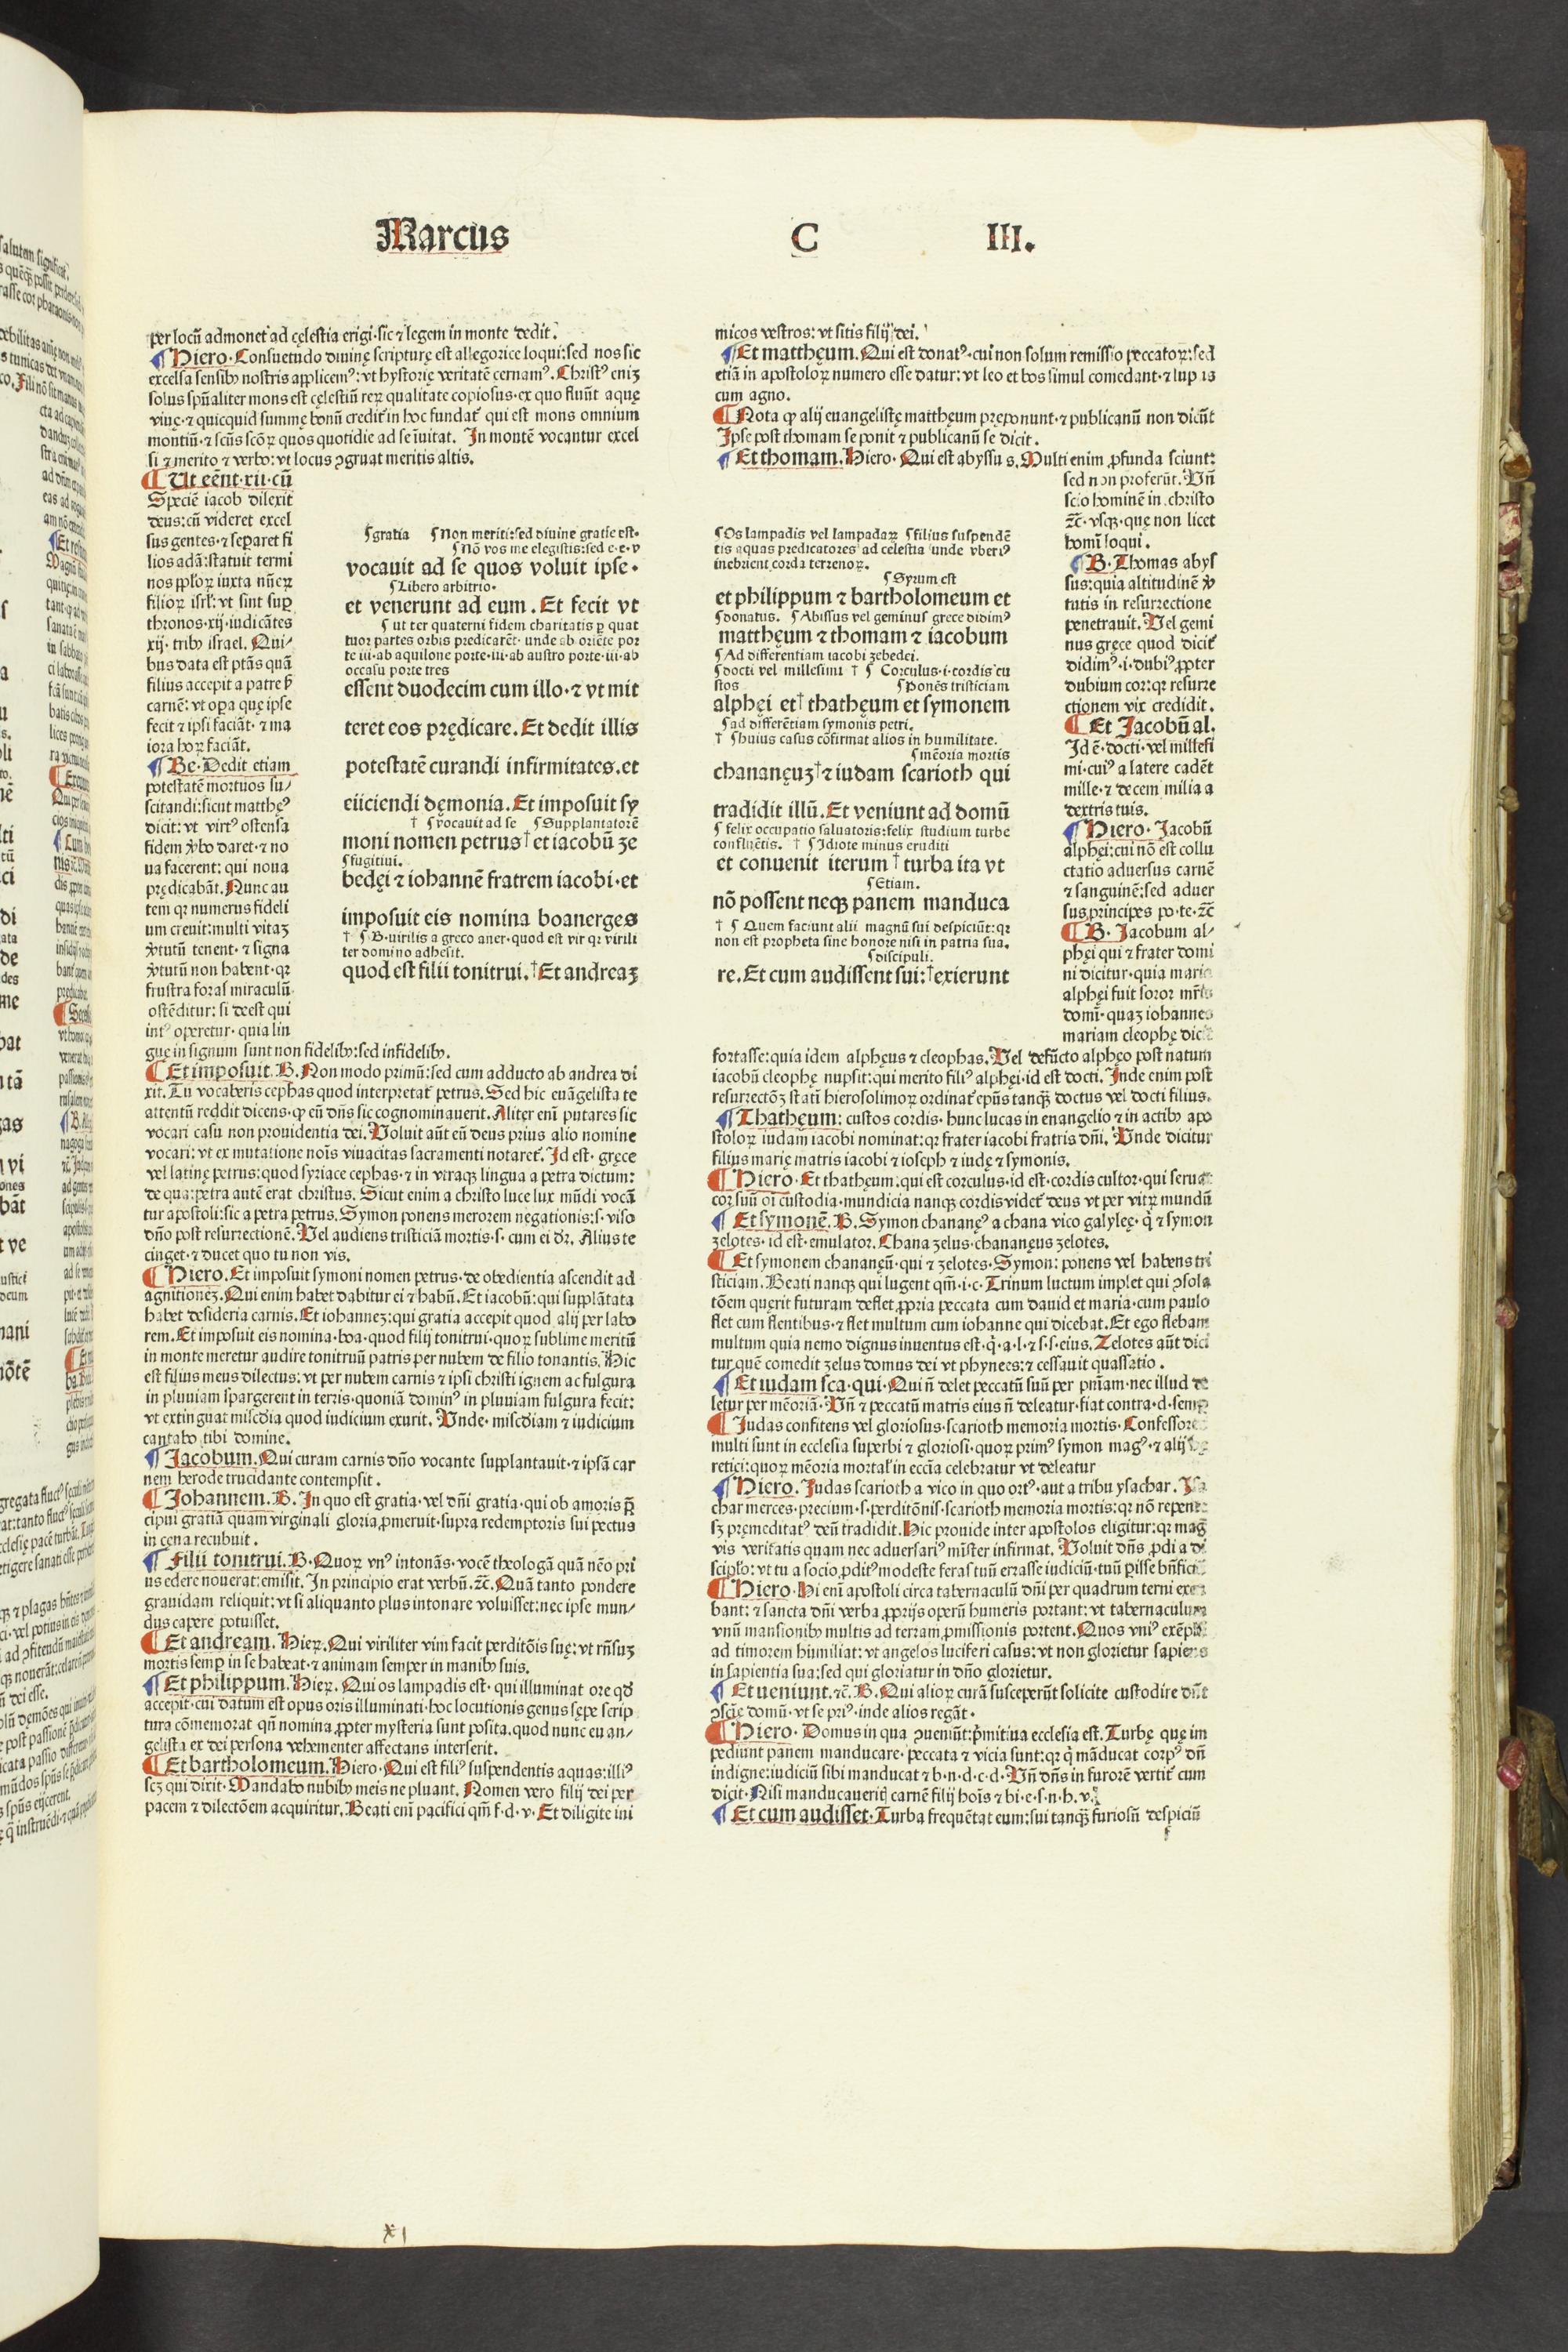 Marcus C III.
per locū admonet ad cęlestia erigi·sic ⁊ legem in monte dedit.
¶ Hiero·Consuetudo diuinę scripturę est allegorice loqui:sed nos sic
excelsa sensibꝰ nostris applicemꝰ:vt hystorię veritatē cernamꝰ.Christꝰ eniꝫ
solus spūaliter mons est cęlestiū reꝝ qualitate copiosus·ex quo fluūt aquę
viuę·⁊ quicquid summę bonū credit in hoc fundat qui est mons omnium
montiū·⁊ scūs scōꝝ quos quotidie ad se īuitat. In montē vocantur excel
si ⁊ merito ⁊ verbo:vt locus ꝯgruat meritis altis.
¶ Ut eēnt·xii·cū
Speciē iacob dilexit
deus:cū videret excel
sus gentes·⁊ separet fi
lios adā:statuit termi
nos pploꝝ iuxta nūeꝝ
filioꝝ isrl:vt sint sup
thronos·xij·iudicātes
xij· tribꝰ israel. Qui⸗
bus data est ptās quā
filius accepit a patre ꝑ
carnē:vt opa quę ipse
fecit ⁊ ipsi faciāt·⁊ ma
iora hoꝝ faciāt.
¶ Be·Dedit etiam
potestatē mortuos su⸗
scitandi:sicut matthęꝰ
dicit:vt virtꝰ ostensa
fidem v̓bo daret·⁊ no
ua facerent: qui noua
prędicabāt.Nunc au
tem qꝛ numerus fideli
um creuit:multi vitaꝫ
v̓tutū tenent·⁊ signa
v̓tutū non habent·qꝛ
frustra foras miraculū
ostēditur:si deest qui
intꝰ operetur·quia lin
gue in signum sunt non fidelibꝰ:sed infidelibꝰ.
¶gratia ¶Non meriti:sed diuine gratie est·
¶Nō vos me elegistis:sed e·e·v
vocauit ad se quos voluit ipse·
¶Libero arbitrio·
et venerunt ad eum. Et fecit vt
¶ ut ter quaterni fidem charitatis ꝑ quat
tuor partes orbis predicarēt·unde ab oriēte por
te iii·ab aquilone porte·iii·ab austro porte·iii·ab
occasu porte tres
essent duodecim cum illo·⁊ vt mit
teret eos prędicare.Et dedit illis
potestatē curandi infirmitates.et
eiiciendi dęmonia.Et imposuit sy
† ¶vocauit ad se ¶Supplantatorē
moni nomen petrus†et iacobū ze
¶fugitiui.
bedęi ⁊ iohannē fratrem iacobi·et
imposuit eis nomina boanerges
† ¶·B·virilis a greco aner·quod est vir qꝛ virili
ter domino adhesit.
quod est filii tonitrui.†Et andreaꝫ
¶ Et imposuit.B.Non modo primū:sed cum adducto ab andrea di
xit.Tu vocaberis cephas quod interpretat petrus.Sed hic euāgelista te
attentū reddit dicens·ꝙ eū dn̄s sic cognominauerit.Aliter enī putares sic
vocari casu non prouidentia dei.Voluit aūt eū deus prius alio nomine
vocari:vt ex mutatione noīs viuacitas sacramenti notaret. Id est·gręce
vel latinę petrus:quod syriace cephas·⁊ in vtraqꝫ lingua a petra dictum:
de qua:petra autē erat christus.Sicut enim a christo luce lux mūdi vocā
tur apostoli:sic a petra petrus.Symon ponens merorem negationis:s·viso
dn̄o post resurrectionē.Vel audiens tristiciā mortis·s·cum ei dr̄. Alius te
cinget·⁊ ducet quo tu non vis.
¶ Hiero.Et imposuit symoni nomen petrus·de obedientia ascendit ad
agnitioneꝫ.Qui enim habet dabitur ei ⁊ habū. Et iacobū:qui supplātata
habet desideria carnis.Et iohanneꝫ:qui gratia accepit quod alij per labo
rem.Et imposuit eis nomina·boa·quod filij tonitrui·quoꝝ sublime meritū
in monte meretur audire tonitruū patris per nubem de filio tonantis.Hic
est filius meus dilectus:vt per nubem carnis ⁊ ipsi christi ignem ac fulgura
in pluuiam spargerent in terris·quoniā dominꝰ in pluuiam fulgura fecit:
vt extinguat misc̄dia quod iudicium exurit.Vnde·misc̄diam ⁊ iudicium
cantabo tibi domine.
¶ Jacobum.Qui curam carnis dn̄o vocante supplantauit·⁊ ipsā car
nem herode trucidante contempsit.
¶ Johannem.B.In quo est gratia·vel dn̄i gratia·qui ob amoris p̄
cipui gratiā quam virginali gloria ꝓmeruit·supra redemptoris sui pectus
in cęna recubuit.
¶ Filii tonitrui.B·Quoꝝ vnꝰ intonās·vocē theologā quā nēo pri
us edere nouerat:emisit.In principio erat verbū.⁊c̄.Quā tanto pondere
grauidam reliquit:vt si aliquanto plus intonare voluisset:nec ipse mun⸗
dus capere potuisset.
¶ Et andream.Hieꝝ.Qui viriliter vim facit perditōis suę:vt rn̄suꝫ
mortis semp in se habeat·⁊ animam semper in manibꝰ suis.
¶ Et philippum.Hieꝝ.Qui os lampadis est·qui illuminat ore qd̓
accepit·cui datum est opus oris illuminati·hoc locutionis genus sępe scrip
tura cōmemorat qn̄ nomina ꝓpter mysteria sunt posita.quod nunc euan⸗
gelista ex dei persona vehementer affectans interserit.
¶ Et bartholomeum.Hiero·Qui est filiꝰ suspendentis aquas:illiꝰ
scꝫ qui dixit·Mandabo nubibꝰ meis ne pluant.Nomen vero filij dei per
pacem ⁊ dilectōem acquiritur.Beati enī pacifici qm̄ f·d·v·Et diligite ini
micos vestros:vt sitis filij dei.
¶ Et matthęum.Qui est donatꝰ·cui non solum remissio peccatoꝝ:sed
etiā in apostoloꝝ numero esse datur:vt leo et bos simul comedant·⁊ lupus
cum agno.
¶ Nota ꝙ alij euangelistę matthęum pręponunt·⁊ publicanū non dicūt
Ipse post thomam se ponit ⁊ publicanū se dicit.
¶ Et thomam.Hiero·Qui est abyssus.Multi enim ꝓfunda sciunt:
sed non proferūt.Vn̄
scio hominē in christo
⁊c̄·vsqꝫ·quę non licet
homī loqui.
¶ B.Thomas abys
sus:quia altitudinē v̓
tutis in resurrectione
penetrauit.Vel gemi
nus gręce quod dicit
didimꝰ·i·dubiꝰ ꝓpter
dubium cor:qꝛ resurre
ctionem vix credidit.
¶ Et Jacobū al.
Id ē·docti·vel millesi
mi·cuiꝰ a latere cadēt
mille·⁊ decem milia a
dextris tuis.
¶ Hiero·Jacobū
alphęi:cui nō est collu
ctatio aduersus carnē
⁊ sanguinē:sed aduer
sus principes po·te·⁊c̄
¶ B·Jacobum al⸗
phęi qui ⁊ frater domi
ni dicitur·quia maria
alphęi fuit soror mr̄is
domī·quaꝫ iohannes
mariam cleophę dicit
¶Os lampadis vel lampadaꝝ ¶filius suspendē
tis aquas predicatores ad celestia unde vberiꝰ
inebrient corda terrenoꝝ.
¶Syrum est
et philippum ⁊ bartholomeum et
¶donatus. ¶Abissus vel geminus grece didimꝰ
matthęum ⁊ thomam ⁊ iacobum
¶Ad differentiam iacobi zebedei.
¶docti vel millesimi † ¶ Corculus·i·cordis cu
stos ¶Ponēs tristiciam
alphęi et†thathęum et symonem
¶ad differētiam symonis petri.
† ¶huius casus cōfirmat alios in humilitate.
¶mēoria mortis
chananęuꝫ†⁊ iudam scarioth qui
tradidit illū.Et veniunt ad domū
¶ felix occupatio saluatoris:felix studium turbe
confluētis. † ¶Idiote minus eruditi
et conuenit iterum † turba ita vt
¶Etiam.
nō possent neqꝫ panem manduca
† ¶ Quem faciunt alii magnū sui despiciūt:qꝛ
non est propheta sine honore nisi in patria sua.
¶discipuli.
re.Et cum audissent sui:†exierunt
fortasse:quia idem alphęus ⁊ cleophas.Vel defūcto alpheo post natum
iacobū cleophę nupsit:qui merito filiꝰ alphęi·id est docti. Inde enim post
resurrectōꝫ statī hierosolimoꝝ ordinat ep̄us tanqꝫ doctus vel docti filius.
¶ Thathęum: custos cordis·hunc lucas in euangelio ⁊ in actibꝰ apo
stoloꝝ iudam iacobi nominat:qꝛ frater iacobi fratris dn̄i.Vnde dicitur
filius marię matris iacobi ⁊ ioseph ⁊ iudę ⁊ symonis.
¶ Hiero·Et thathęum:qui est corculus·id est·cordis cultor·qui seruat
cor suū oī custodia·mundicia nanqꝫ cordis videt deus vt per vitꝝ mundū
¶ Et symonē.B.Symon chananęꝰ a chana vico galylęę·q̇ ⁊ symon
zelotes·id est·emulator.Chana zelus·chananęus zelotes.
¶ Et symonem chananęū·qui ⁊ zelotes·Symon: ponens vel habens tri
sticiam.Beati nanqꝫ qui lugent qm̄·i·c·Trinum luctum implet qui ꝯsola
tōem quęrit futuram deflet ꝓpria peccata cum dauid et maria·cum paulo
flet cum flentibus·⁊ flet multum cum iohanne qui dicebat.Et ego flebam
multum quia nemo dignus inuentus est·q̇·a·l·⁊ s·s·eius.Zelotes aūt dici
tur quē comedit zelus domus dei vt phynees:⁊ cessauit quassatio.
¶ Et iudam sca·qui·Qui n̄ delet peccatū suū per pn̄iam·nec illud de
letur per mēoriā.Vn̄ ⁊ peccatū matris eius n̄ deleatur·fiat contra·d·semp
¶ Judas confitens vel gloriosus·scarioth memoria mortis·Confessores
multi sunt in ecclesia superbi ⁊ gloriosi·quoꝝ primꝰ symon magꝰ·⁊ alij he
retici:quoꝝ mēoria mortał in eccīa celebratur vt deleatur
¶ Hiero.Judas scarioth a vico in quo ortꝰ·aut a tribu ysachar. Isa
char merces·precium·s·perditōnis·scarioth memoria mortis:qꝛ nō repente
sꝫ pręmeditatꝰ deū tradidit.Hic prouide inter apostolos eligitur:qꝛ mag̃
vis veritatis quam nec aduersariꝰ mīster infirmat. Voluit dn̄s ꝓdi a di
scipło:vt tu a socio ꝓditꝰ modeste feras tuū errasse iudiciū·tuū ꝑisse bn̄ficiū
¶ Hiero·Hi enī apostoli circa tabernaculū dn̄i per quadrum terni excu
bant: ⁊ sancta dn̄i verba ꝓprijs operū humeris portant: vt tabernaculum
vnū mansionibꝰ multis ad terram ꝓmissionis portent.Quos vniꝰ exēplū
ad timorem humiliat: vt angelos luciferi casus: vt non glorietur sapiens
in sapientia sua:sed qui gloriatur in dn̄o glorietur.
¶ Et ueniunt.⁊c̄.B.Qui alioꝝ curā susceperūt solicite custodire dn̄t
ꝯscię domū·vt se priꝰ·inde alios regāt·
¶ Hiero· Domus in qua ꝯueniūt:p̓mitiua ecclesia est.Turbę quę im
pediunt panem manducare·peccata ⁊ vicia sunt:qꝛ q̇ māducat corpꝰ dn̄i
indigne:iudiciū sibi manducat ⁊ b·n·d·c·d·Vn̄ dn̄s in furorē vertit cum
dicit·Nisi manducaueritꝭ carnē filij hoīs ⁊ bi·e·s·n·h.v.
¶ Et cum audisset·Turba frequētat eum:sui tanqꝫ furiosū despiciūt